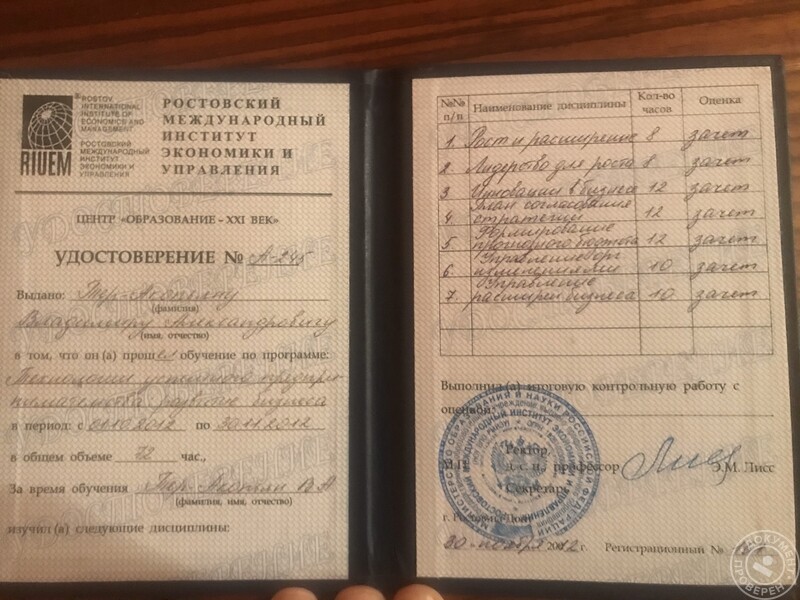 ®ROSTOV
INTERNATIONAL
INSTITUTE OF
ECONOMICS AND
MANAGEMENT
РОСТОВСКИЙ
МЕЖДУНАРОДНЫЙ
ИНСТИТУТ
ЭКОНОМИКИ И
УПРАВЛЕНИЯ
RIUEM
РОСТОВСКИЙ
МЕЖДУНАРОДНЫЙ
ИНСТИТУТ
ЭКОНОМИКИ И
УПРАВЛЕНИЯ
ЦЕНТР «ОБРАЗОВАНИЕ - XXI ВЕК»
УДОСТОВЕРЕНИЕ № А-245
Выдано:
(фамилия)
Владимиру Александровичу
(имя, отчество)
в том, что он (а) прошел обучение по программе:
Технологии успешного предпри-
нимательства развитие бизнеса
в период: с 01.10.2012 по 30.11.2012
в общем объеме 72 час.,
За время обучения
(фамилия, имя, отчество)
изучил (а) следующие дисциплины:
№№ п/п Наименование дисциплины Кол-во часов Оценка
1. Рост и расширение 8 зачет
2. Лидерство для роста 8 зачет
3 Инновации в бизнесе 12 зачет
4 План согласования стратегии 12 зачет
5 Формирование 12 зачет
6. Управление 10 зачет
7. Управление расширен. бизнеса 10 зачет
Выполнил (а) итоговую контрольную работу с
оценкой:
Ректор,
М.П. д.с.н., профессор Э.М. Лисс
Секретарь
г. Ростов-на-Дону
30 ноября 2012 г. Регистрационный №
ДОКУМЕНТ
ПРОВЕРЕН